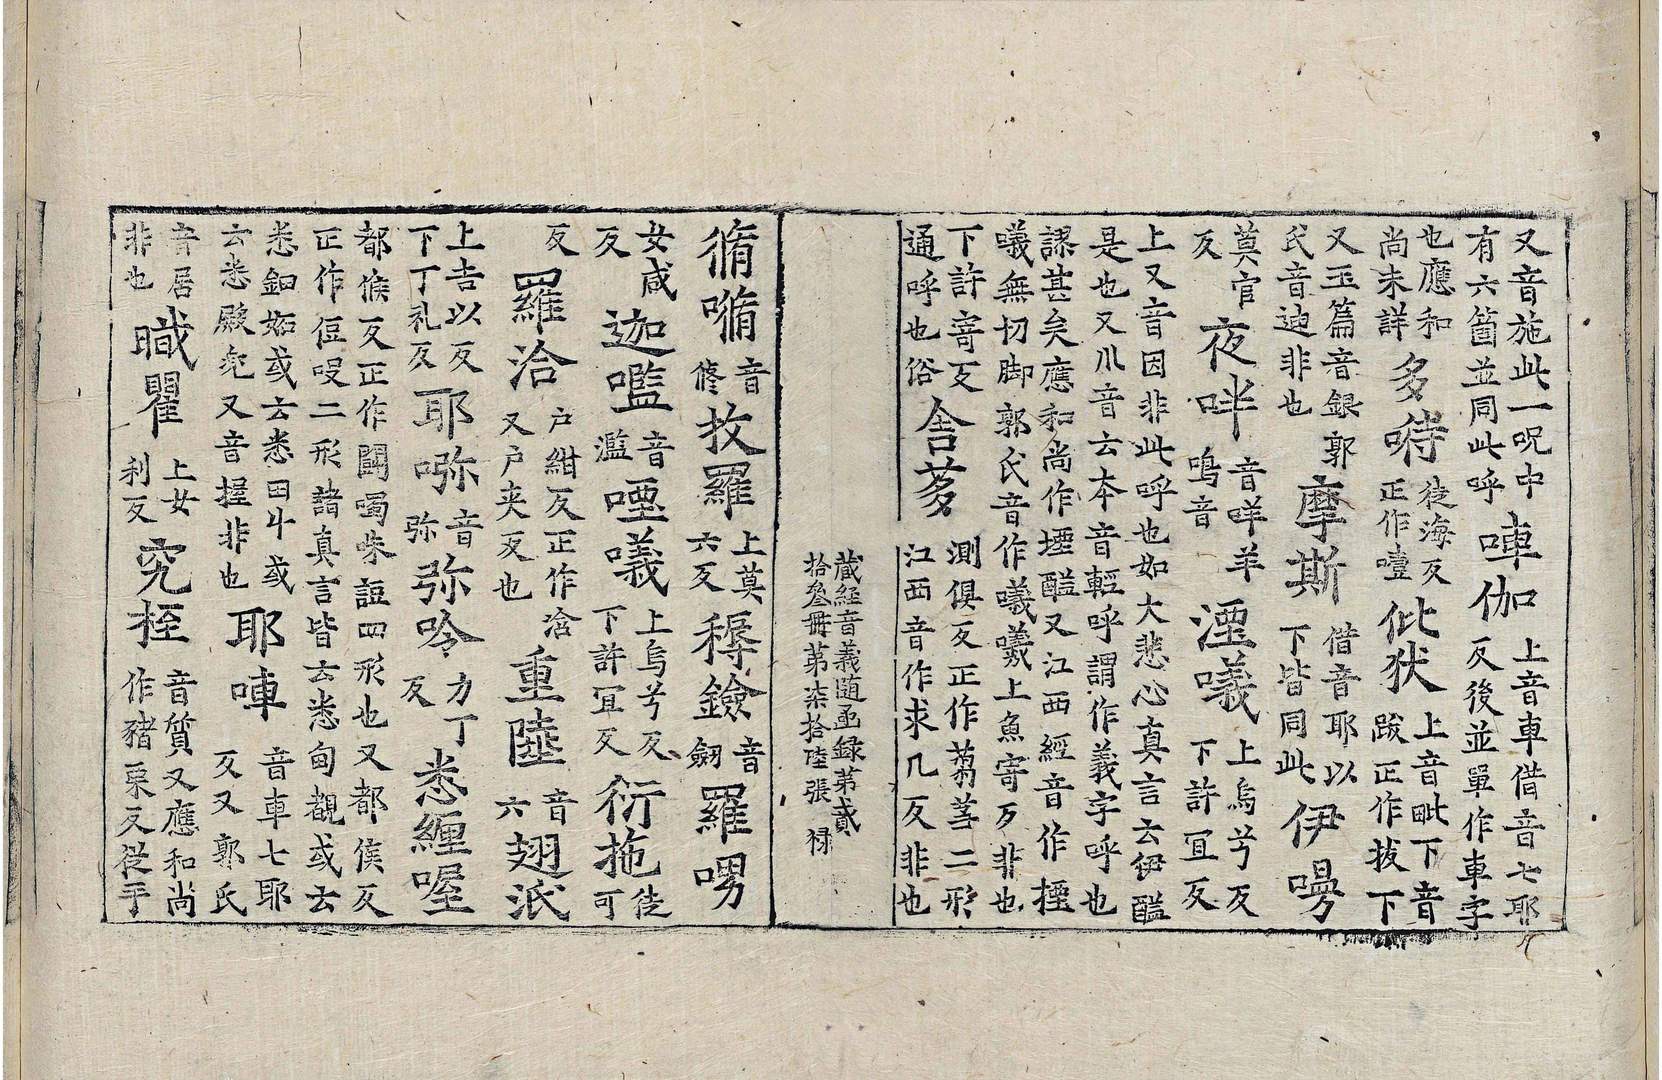 又音施此一呪中有六箇並同此呼 㖠伽 上音車借音七耶反後並單作車字
也應和尚未詳 多㖵 徒海反正作噎 仳狀 上音毗下音跋正作拔下
又玉篇音銀郭氏音迪非也 摩斯 借音耶以下皆同此 伊㗈
莫官反 夜哶 音咩羊鳴音 湮㘁 上烏兮反下許宜反
上又音因非此呼也如大悲心真言云伊醯是也又㕚音云本音輕呼謂作義字呼也
謬甚矣應和尚作堙醯又江西經音作𢰅㘁無切脚郭氏音作㘁㘁上魚寄反非也
下許寄反通呼也俗 舎芗 測俱反正作蒭芻二形江西音作求几反非也
藏經音義随函録第貳拾叄册第柒拾陸張 禄
脩㗜 音修 牧羅 上莫六反 稺鐱 音劒 羅㖿
女咸反 迦嚂 音濫 㖶㘁 上烏兮反下許宜反 衍拖 徒可
反 羅洽 户紺反正作浛又户夹反也 重陸 音六 翅泜
上吉以反下丁礼反 耶㳽 音弥 弥吟 力丁反 悉纏喔
都候反正作鬪噣咮䛠四形也又都侯反正作侸㖕二形諸真言皆云悉甸覩或云
悉鈿妬或云悉田斗或云悉殿兜又音握非也 耶㖠 音車七耶反又郭氏
音居非也 職瞿 上女利反 究桎 音質又應和尚作豬栗反從手